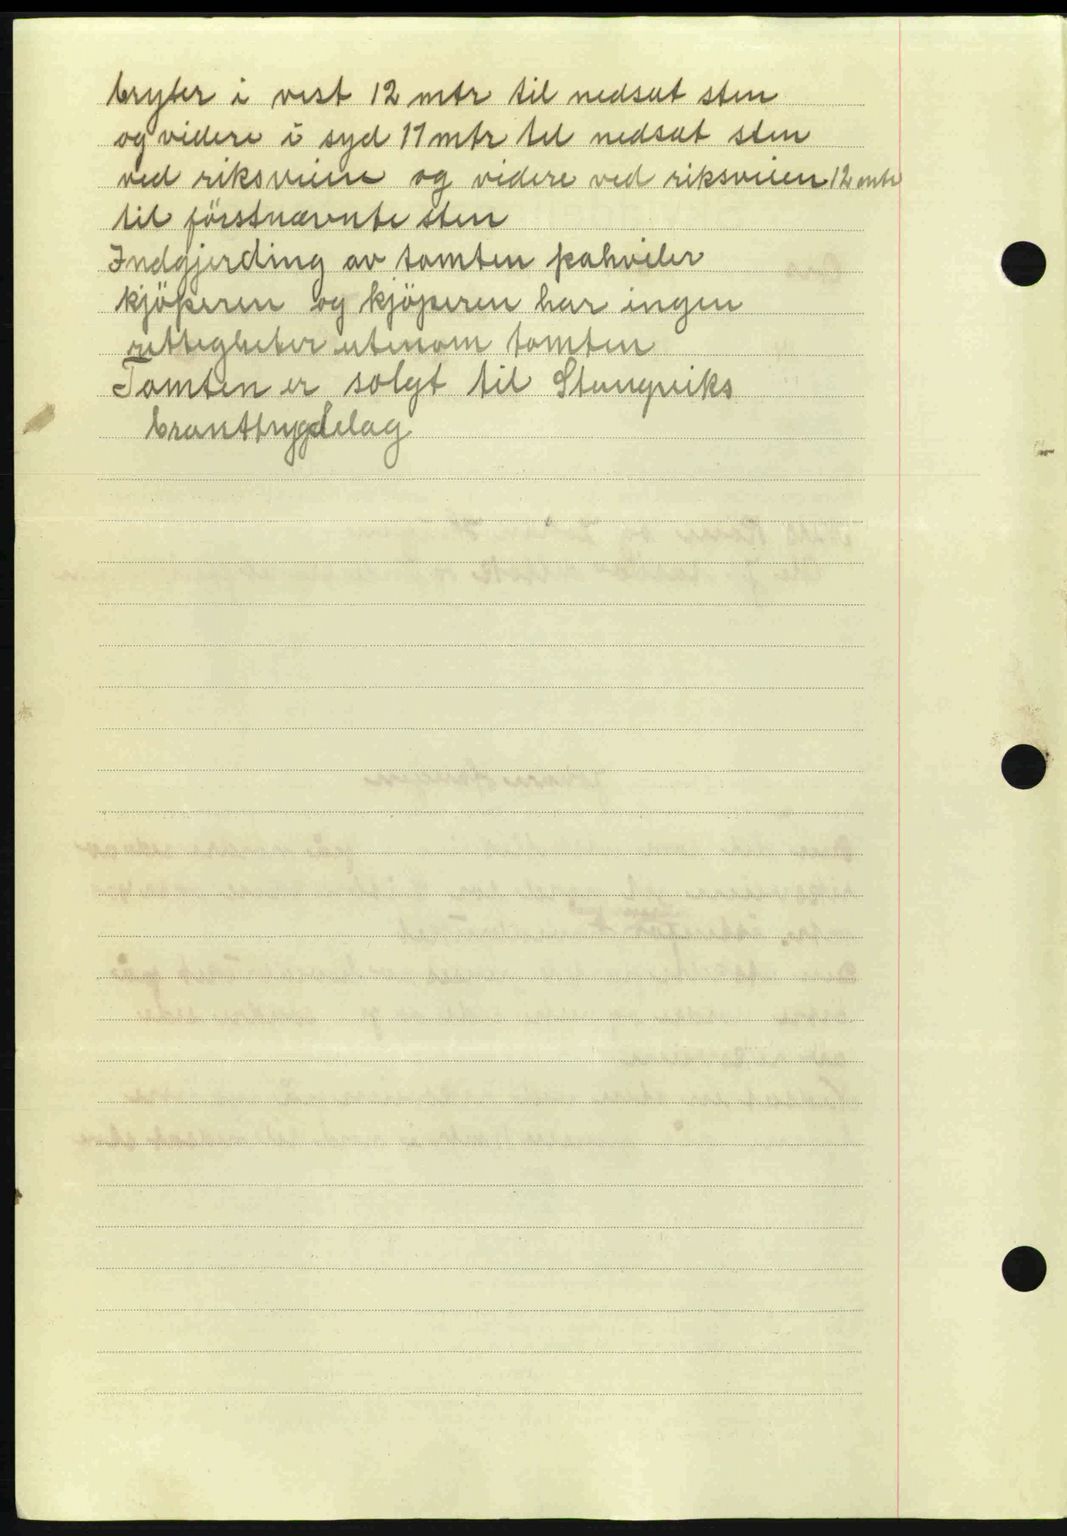 bryter i vest 12 mtr til nedsat sten
og videre i syd 17 mtr til nedsat sten
ved riksveien og videre ved riksveien 12 mtr
til förstnævnte sten
Indgjerding av tomten pahviler
kjöperen og kjöperen har ingen
rettigheter utenom tomten
Tomten er solgt til Stangviks
branttrygdelag